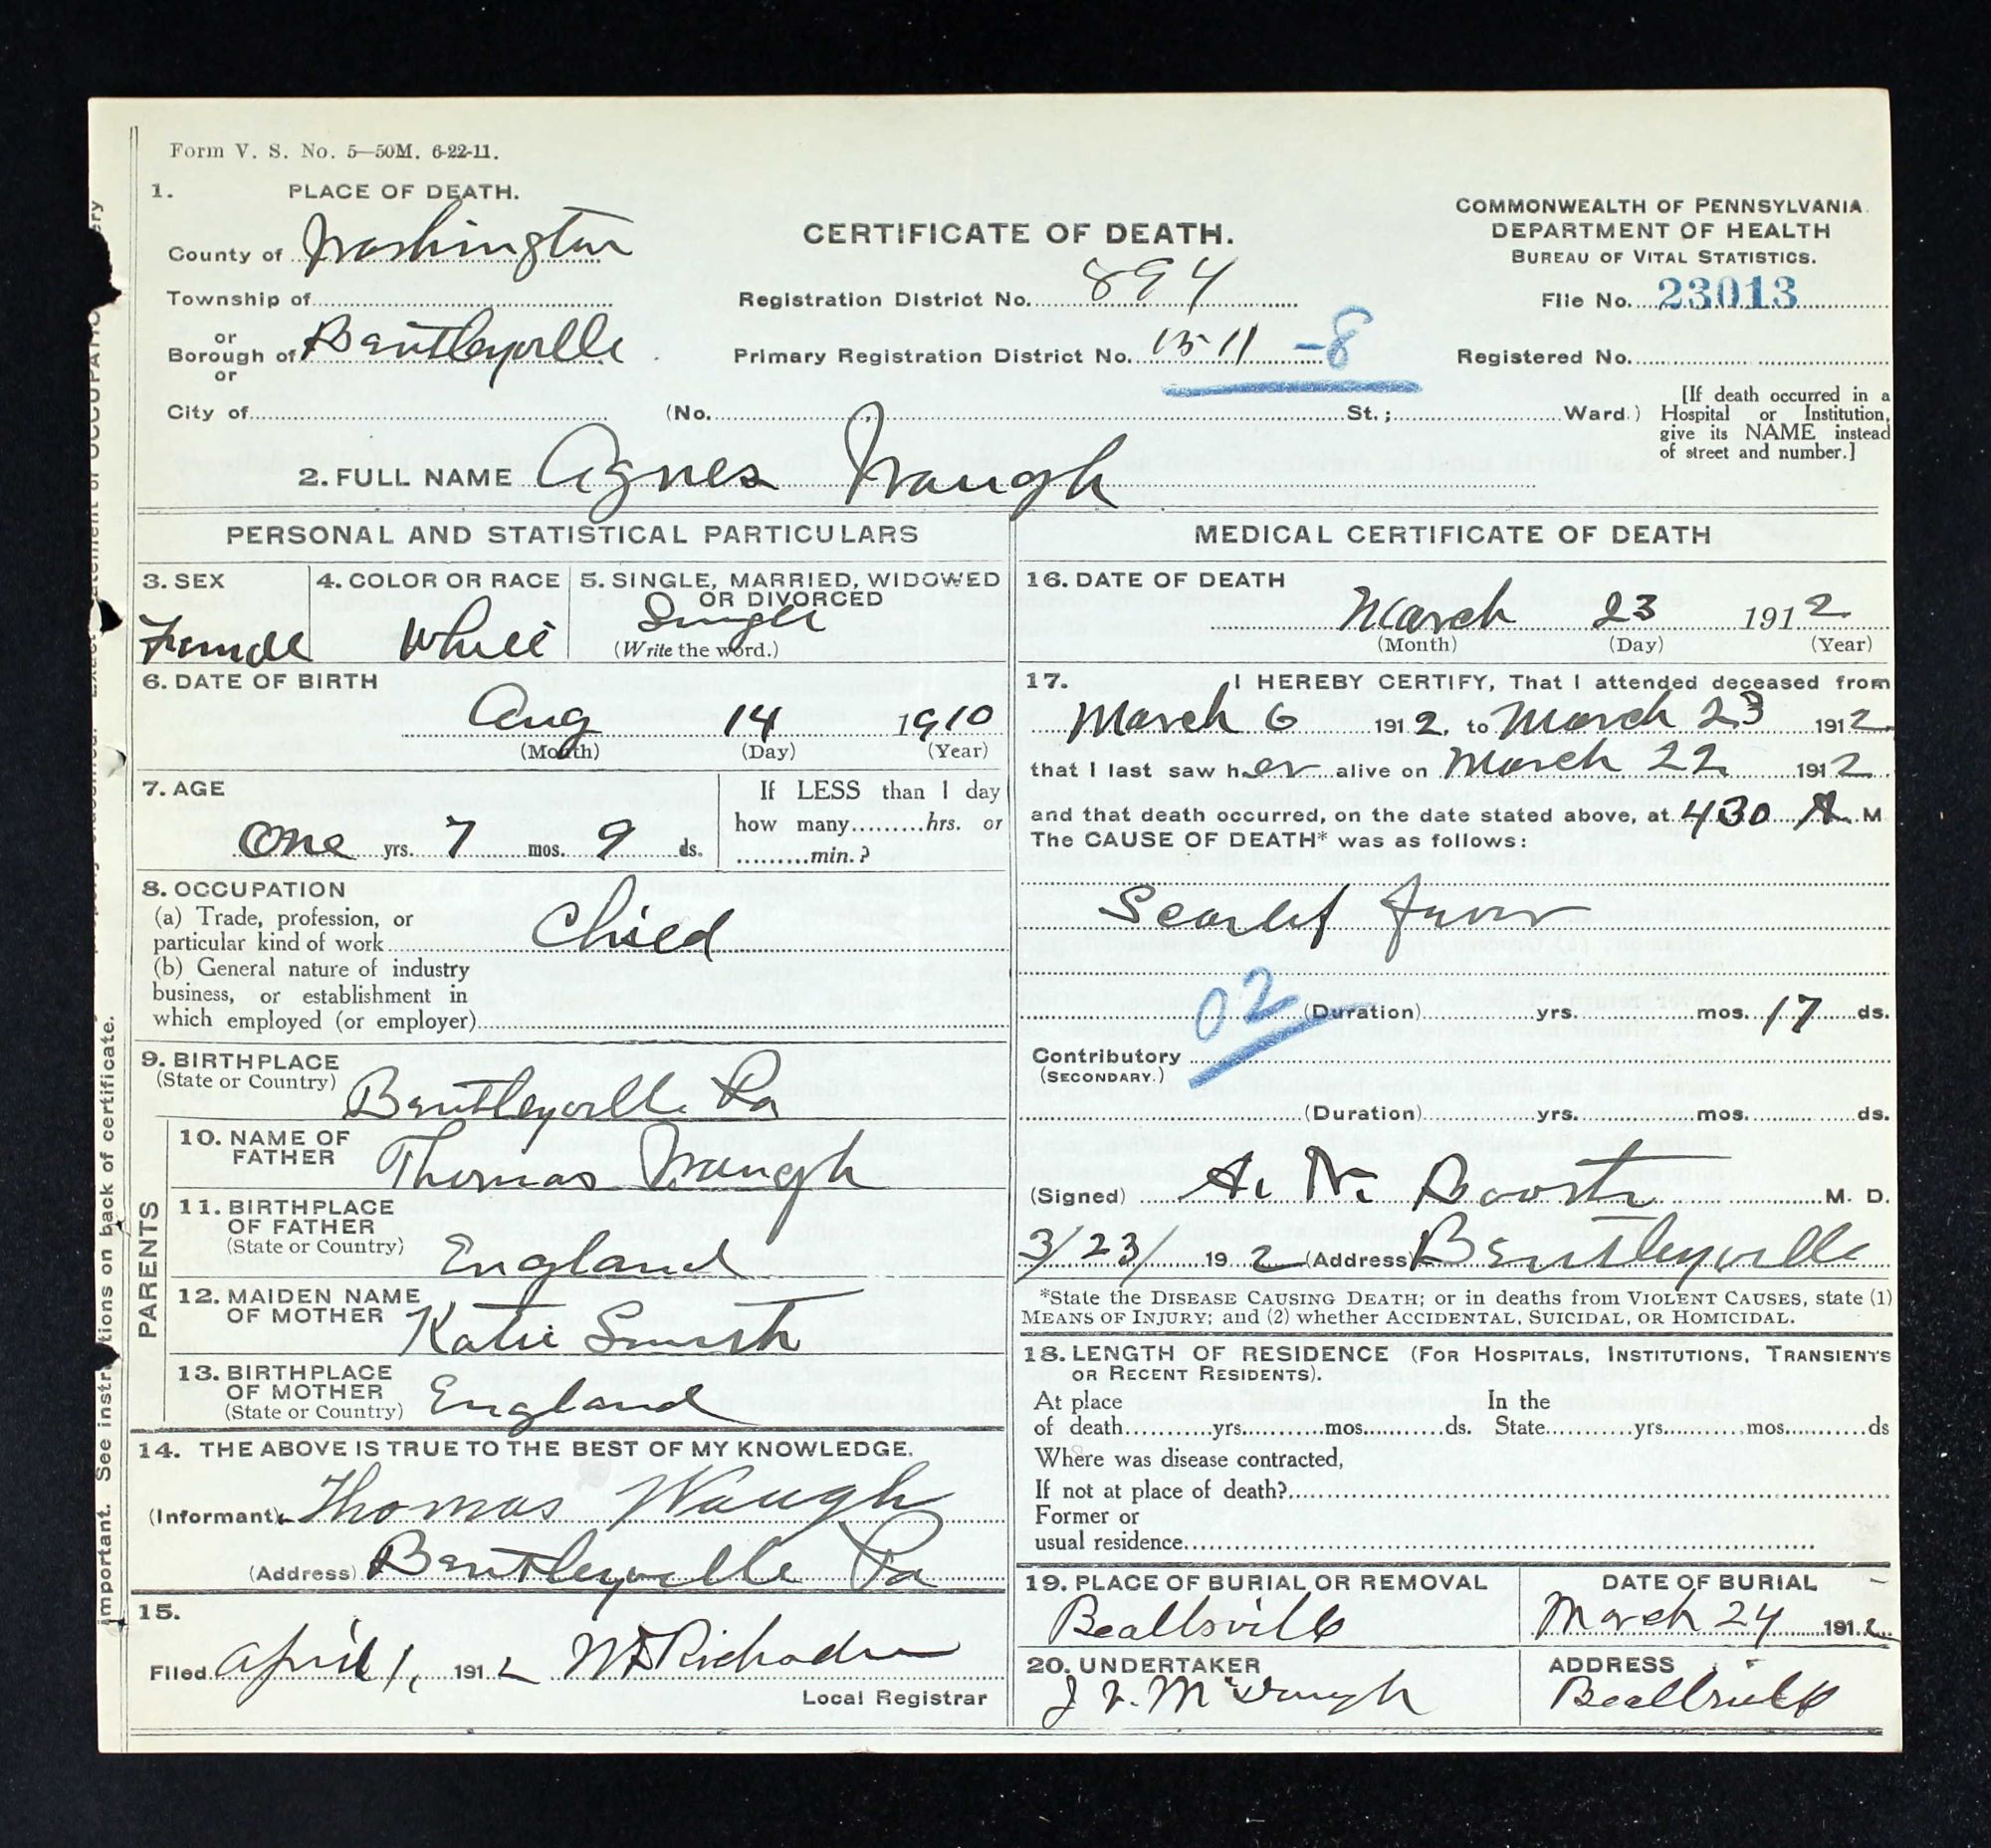 Form V. S. No. 5—50M. 6-22-11.
1. PLACE OF DEATH.
County of Washington
Township of
or
Borough of Bentleyville
or
City of (No. St.; Ward.)
CERTIFICATE OF DEATH.
Registration District No. 894
Primary Registration District No. 1511 -8
COMMONWEALTH OF PENNSYLVANIA
DEPARTMENT OF HEALTH
BUREAU OF VITAL STATISTICS.
File No. 23013
Registered No.
[If death occurred in a
Hospital or Institution,
give its NAME instead
of street and number.]
2. FULL NAME Agnes Waugh
PERSONAL AND STATISTICAL PARTICULARS
3. SEX
Female
4. COLOR OR RACE
White
5. SINGLE, MARRIED, WIDOWED
OR DIVORCED
Single
(Write the word.)
6. DATE OF BIRTH
Aug 14 1910
(Month) (Day) (Year)
7. AGE
One yrs. 7 mos. 9 ds.
If LESS than 1 day
how many.........hrs. or
.........min.?
8. OCCUPATION
(a) Trade, profession, or
particular kind of work Child
(b) General nature of industry
business, or establishment in
which employed (or employer)
9. BIRTHPLACE
(State or Country) Bentleyville Pa
PARENTS
10. NAME OF
FATHER Thomas Waugh
11. BIRTHPLACE
OF FATHER
(State or Country) England
12. MAIDEN NAME
OF MOTHER Katie Smith
13. BIRTHPLACE
OF MOTHER
(State or Country) England
14. THE ABOVE IS TRUE TO THE BEST OF MY KNOWLEDGE.
(Informant) Thomas Waugh
(Address) Bentleyville Pa
15.
Filed April 1, 1912
Local Registrar
MEDICAL CERTIFICATE OF DEATH
16. DATE OF DEATH
March 23 1912
(Month) (Day) (Year)
17. I HEREBY CERTIFY, That I attended deceased from
March 6 1912, to March 23 1912
that I last saw her alive on March 22 1912
and that death occurred, on the date stated above, at 430 A. M
The CAUSE OF DEATH* was as follows:
Scarlet fever
02
(Duration) yrs. mos. 17 ds.
Contributory
(SECONDARY.)
(Duration) yrs. mos. ds.
(Signed) A. N. M. D.
3/23/ 19 2 (Address) Bentleyville
*State the DISEASE CAUSING DEATH; or in deaths from VIOLENT CAUSES, state (1)
MEANS OF INJURY; and (2) whether ACCIDENTAL, SUICIDAL, OR HOMICIDAL.
18. LENGTH OF RESIDENCE (FOR HOSPITALS, INSTITUTIONS, TRANSIENTS
OR RECENT RESIDENTS).
At place In the
of death...........yrs...........mos..........ds. State..........yrs..........mos...........ds
Where was disease contracted,
If not at place of death?
Former or
usual residence
19. PLACE OF BURIAL OR REMOVAL
Beallsville
DATE OF BURIAL
March 24 1912
20. UNDERTAKER
ADDRESS
Beallsville
important. See instructions on back of certificate.